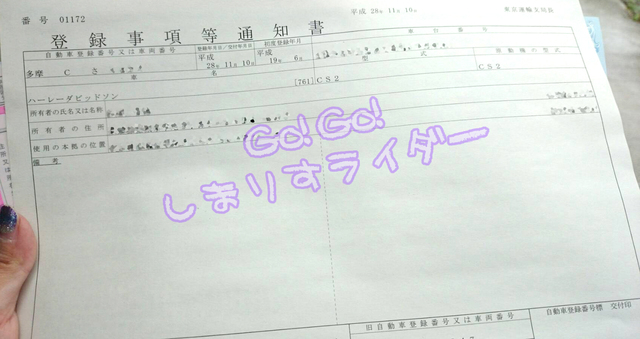 番号 01172
平成 28年 11月 10日
東京運輸支局長
登録事項等通知書
自動車登録番号又は車両番号
登録年月日/交付年月日
初度登録年月
車台番号
多摩 C さ
平成 28年 11月 10日
平成 19年 6月
車名
型式
原動機の型式
[761] CS2
CS2
ハーレーダビッドソン
所有者の氏名又は名称
所有者の住所
使用の本拠の位置
備考
Go! Go!
しまりすライダー
旧自動車登録番号又は車両番号
自動車登録番号標 交付印